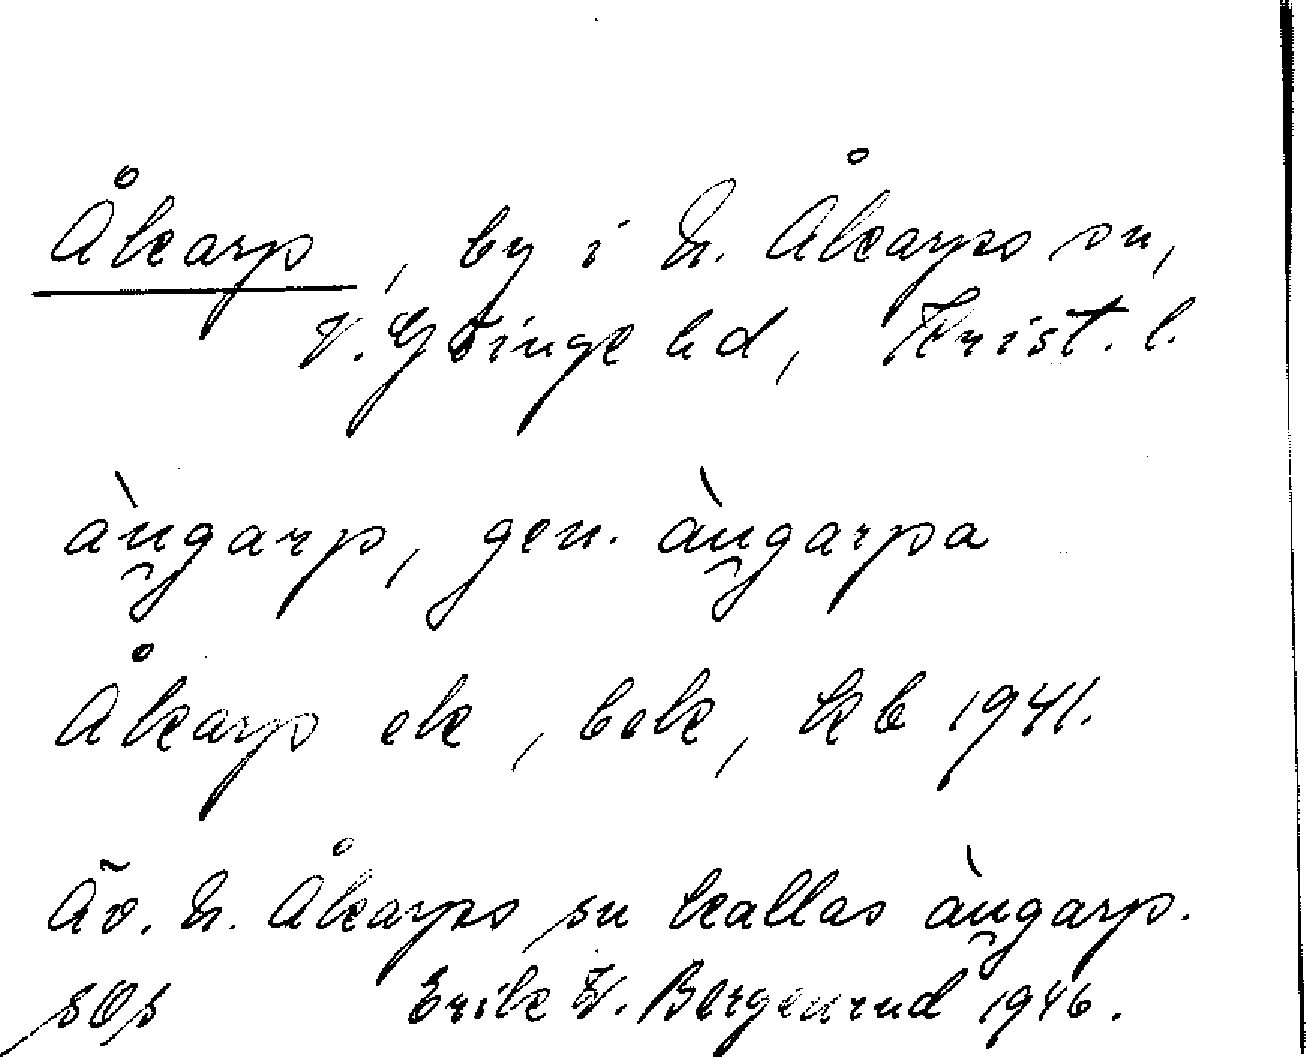 Åkarp, by i N. Åkarps sn,
V. Göinge hd, Krist. l.
àngarp, gen. àngarpa
Åkarp ek, bek, kb 1941.
Äv. N. Åkarps sn kallas àngarp.
Erik W. Bergenrud 1946.